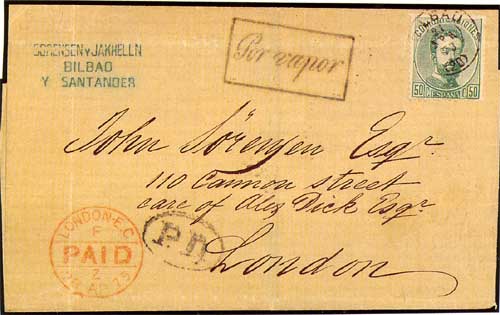 SORENSEN Y JAKHELLN
BILBAO
Y SANTANDER
Por vapor
COMUNICACIONES
50 ESPAÑA 50
BILBAO
John Sörensen Esqr.
110 Cannon street
care of Alex Dick Esqr.
London
LONDON-E.C
F
PAID
Z
AP 73
P.D.